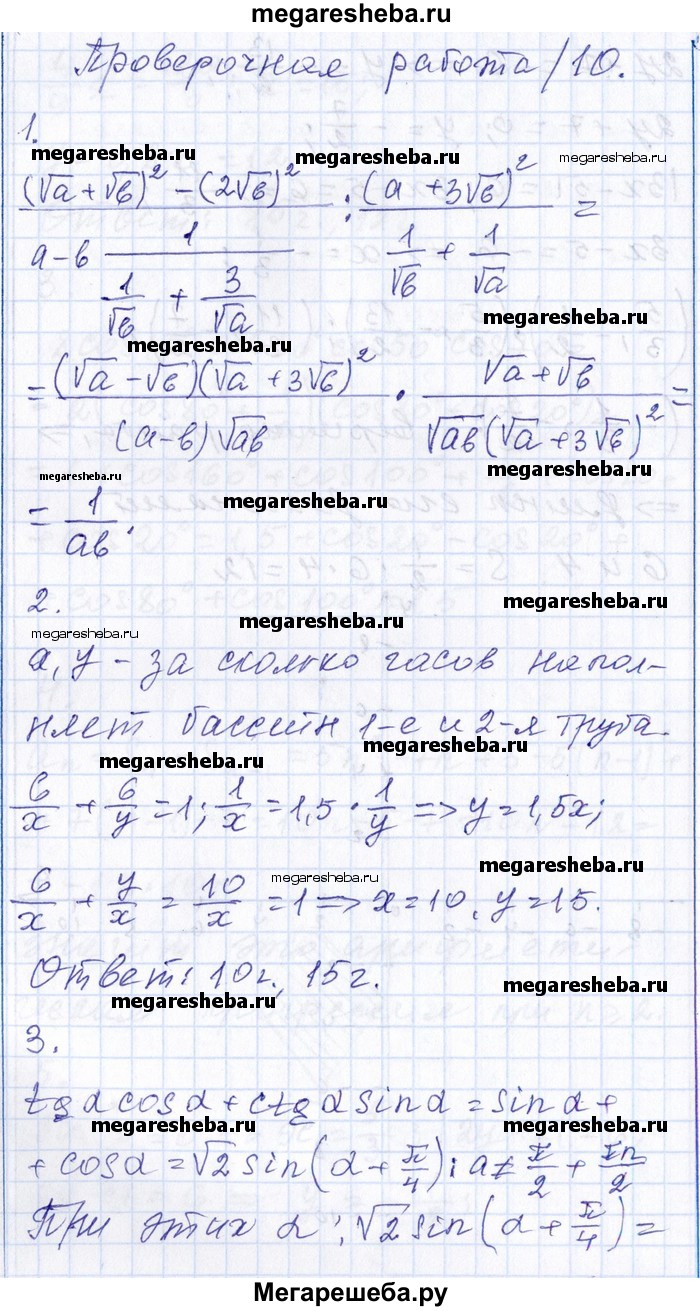 megaresheba.ru
megaresheba.ru
Проверочная работа /10.
1.
megaresheba.ru megaresheba.ru
(√a + √в)² − (2√в)² / a−в 1/(1/√в + 3/√a) : (a + 3√в)² / (1/√в + 1/√a) =
megaresheba.ru
megaresheba.ru
= (√a − √в)(√a + 3√в)² / (a−в)√aв · (√a + √в) / √aв(√a + 3√в)² =
megaresheba.ru megaresheba.ru
megaresheba.ru
= 1/aв.
2.
megaresheba.ru
megaresheba.ru
x, y – за сколько часов напол-
няет бассейн 1-е и 2-я труба.
megaresheba.ru megaresheba.ru
6/x + 6/y = 1; 1/x = 1,5 · 1/y => y = 1,5x;
megaresheba.ru
megaresheba.ru
6/x + y/x = 10/x = 1 => x = 10, y = 15.
Ответ: 10 ч., 15 ч.
megaresheba.ru megaresheba.ru
3.
tg α cos α + ctg α sin α = sin α +
megaresheba.ru megaresheba.ru
+ cos α = √2 sin(α + π/4); a ≠ π/2 + πn/2
При этих α: √2 sin(α + π/4) =
megaresheba.ru megaresheba.ru
Мегарешеба.ру